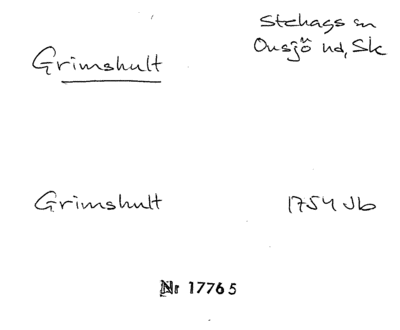 Stehags sn
Grimshult
Onsjö hd, Sk
Grimshult 1754 Jb
Nr 17765